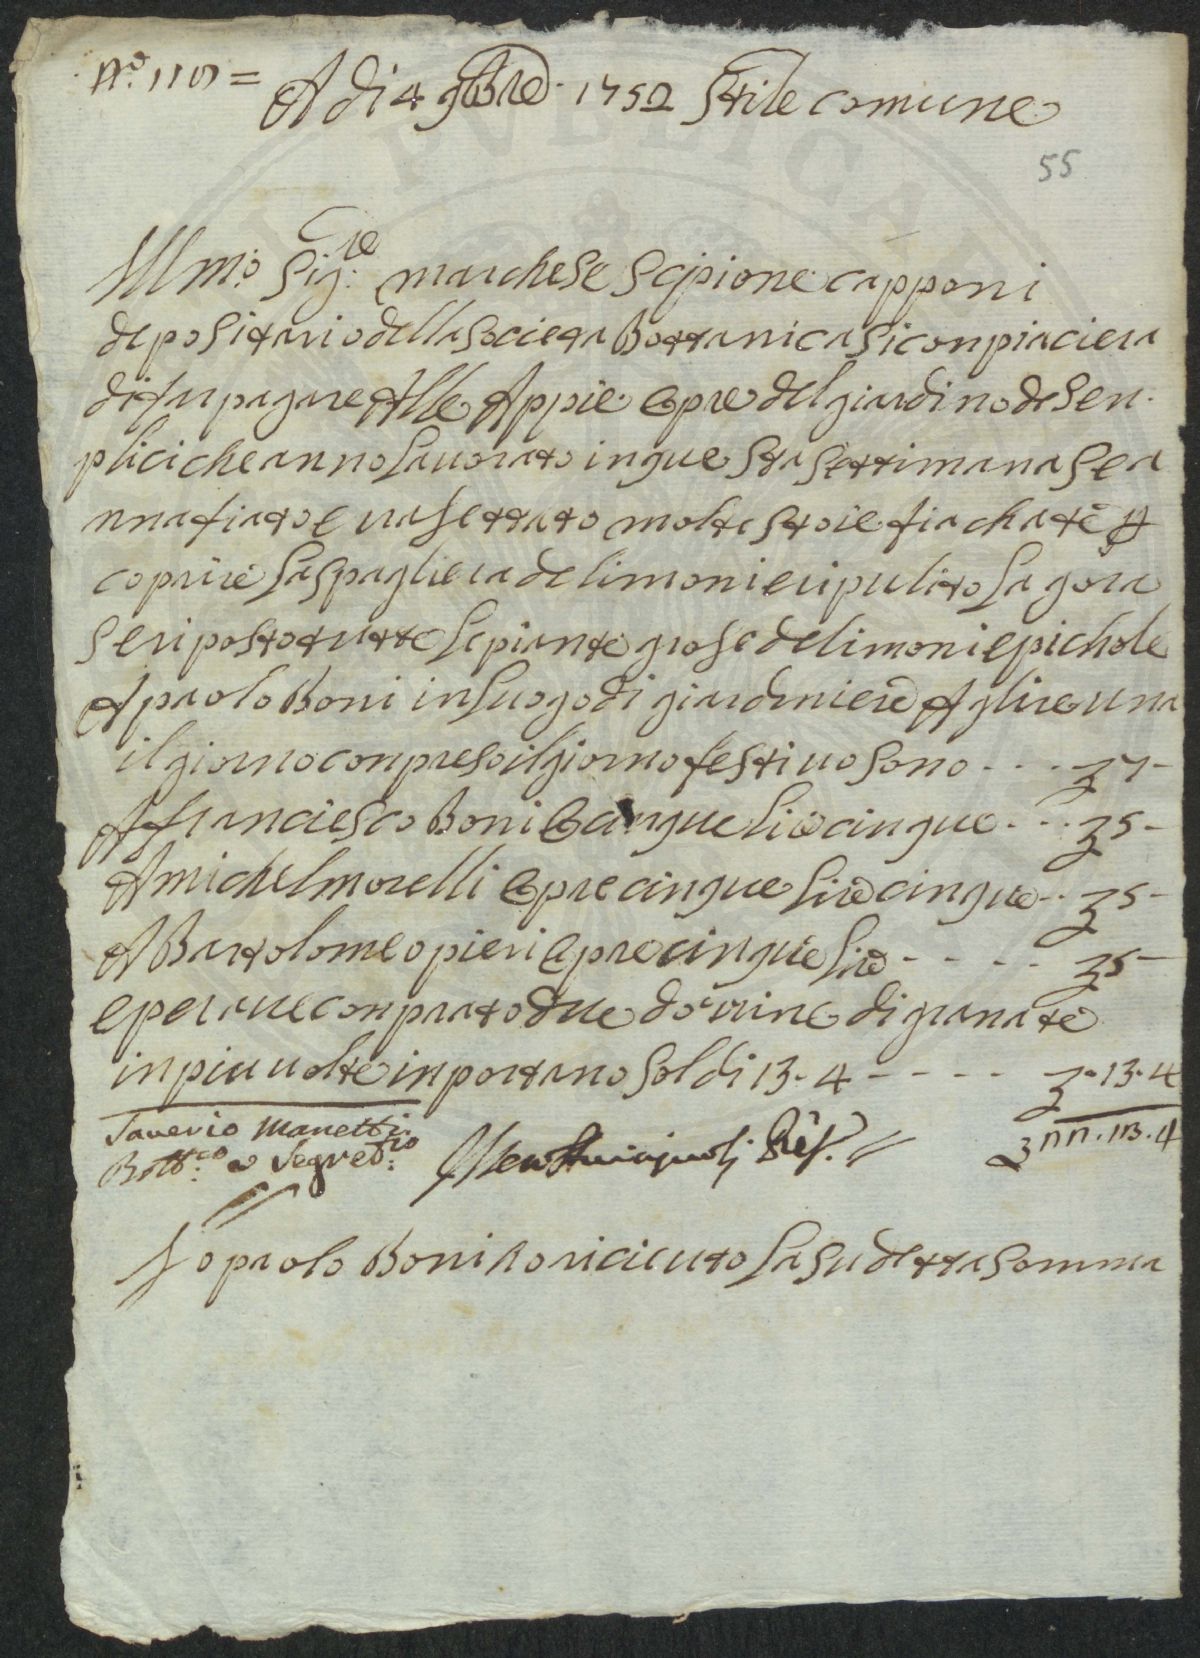 A di 4 9bre 1752 Stile comune
55
Illmo. Sigre. marchese Scipione capponi
depositario della Societa Bottanica Si conpiaciera
di far pagare Alle Appie Opre del giardino de Sen
plici che anno Lavorato in que sta Settimana Se a
nnafiato e rasettato molte stoie fiachate p
coprire La Spagliera de limoni e ripulito La gora
Se riposto tutte Le piante grose de limoni e pichole
A paolo Boni in Luogo di giardiniere A lire una
il giorno conpreso il giorno festivo Sono - - - 7 -
A franciesco Boni cinque Lire cinque - - - 5 -
A michel morelli Opre cinque Lire cinque - - 5 -
A Bartolomeo pieri Opre cinque Lire - - - - 5 -
e per avere conprato due dozzine di granate
in piu volte inportano Soldi 13 - 4 - - - - - 13 - 4
Saverio Manetti
Bottco. e Segretrio.
Io paolo Boni ho riceuto La Sudetta Somma